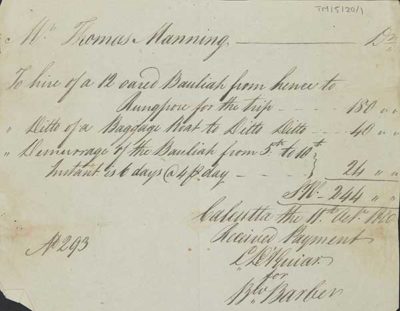 TM/5/20/1
Mr. Thomas Manning Dr
To hire of a 12 oared Bauliah from hence to
Rungpore for the trip 180 " "
" Ditto of a Baggage Boat to Ditto Ditto 40 " "
" Demurrage of the Bauliah from 5th to 10th
Instant is 6 days @ 4 day 24 " "
244 " "
Calcutta the 11th
Received Payment
for
Barber
No 293